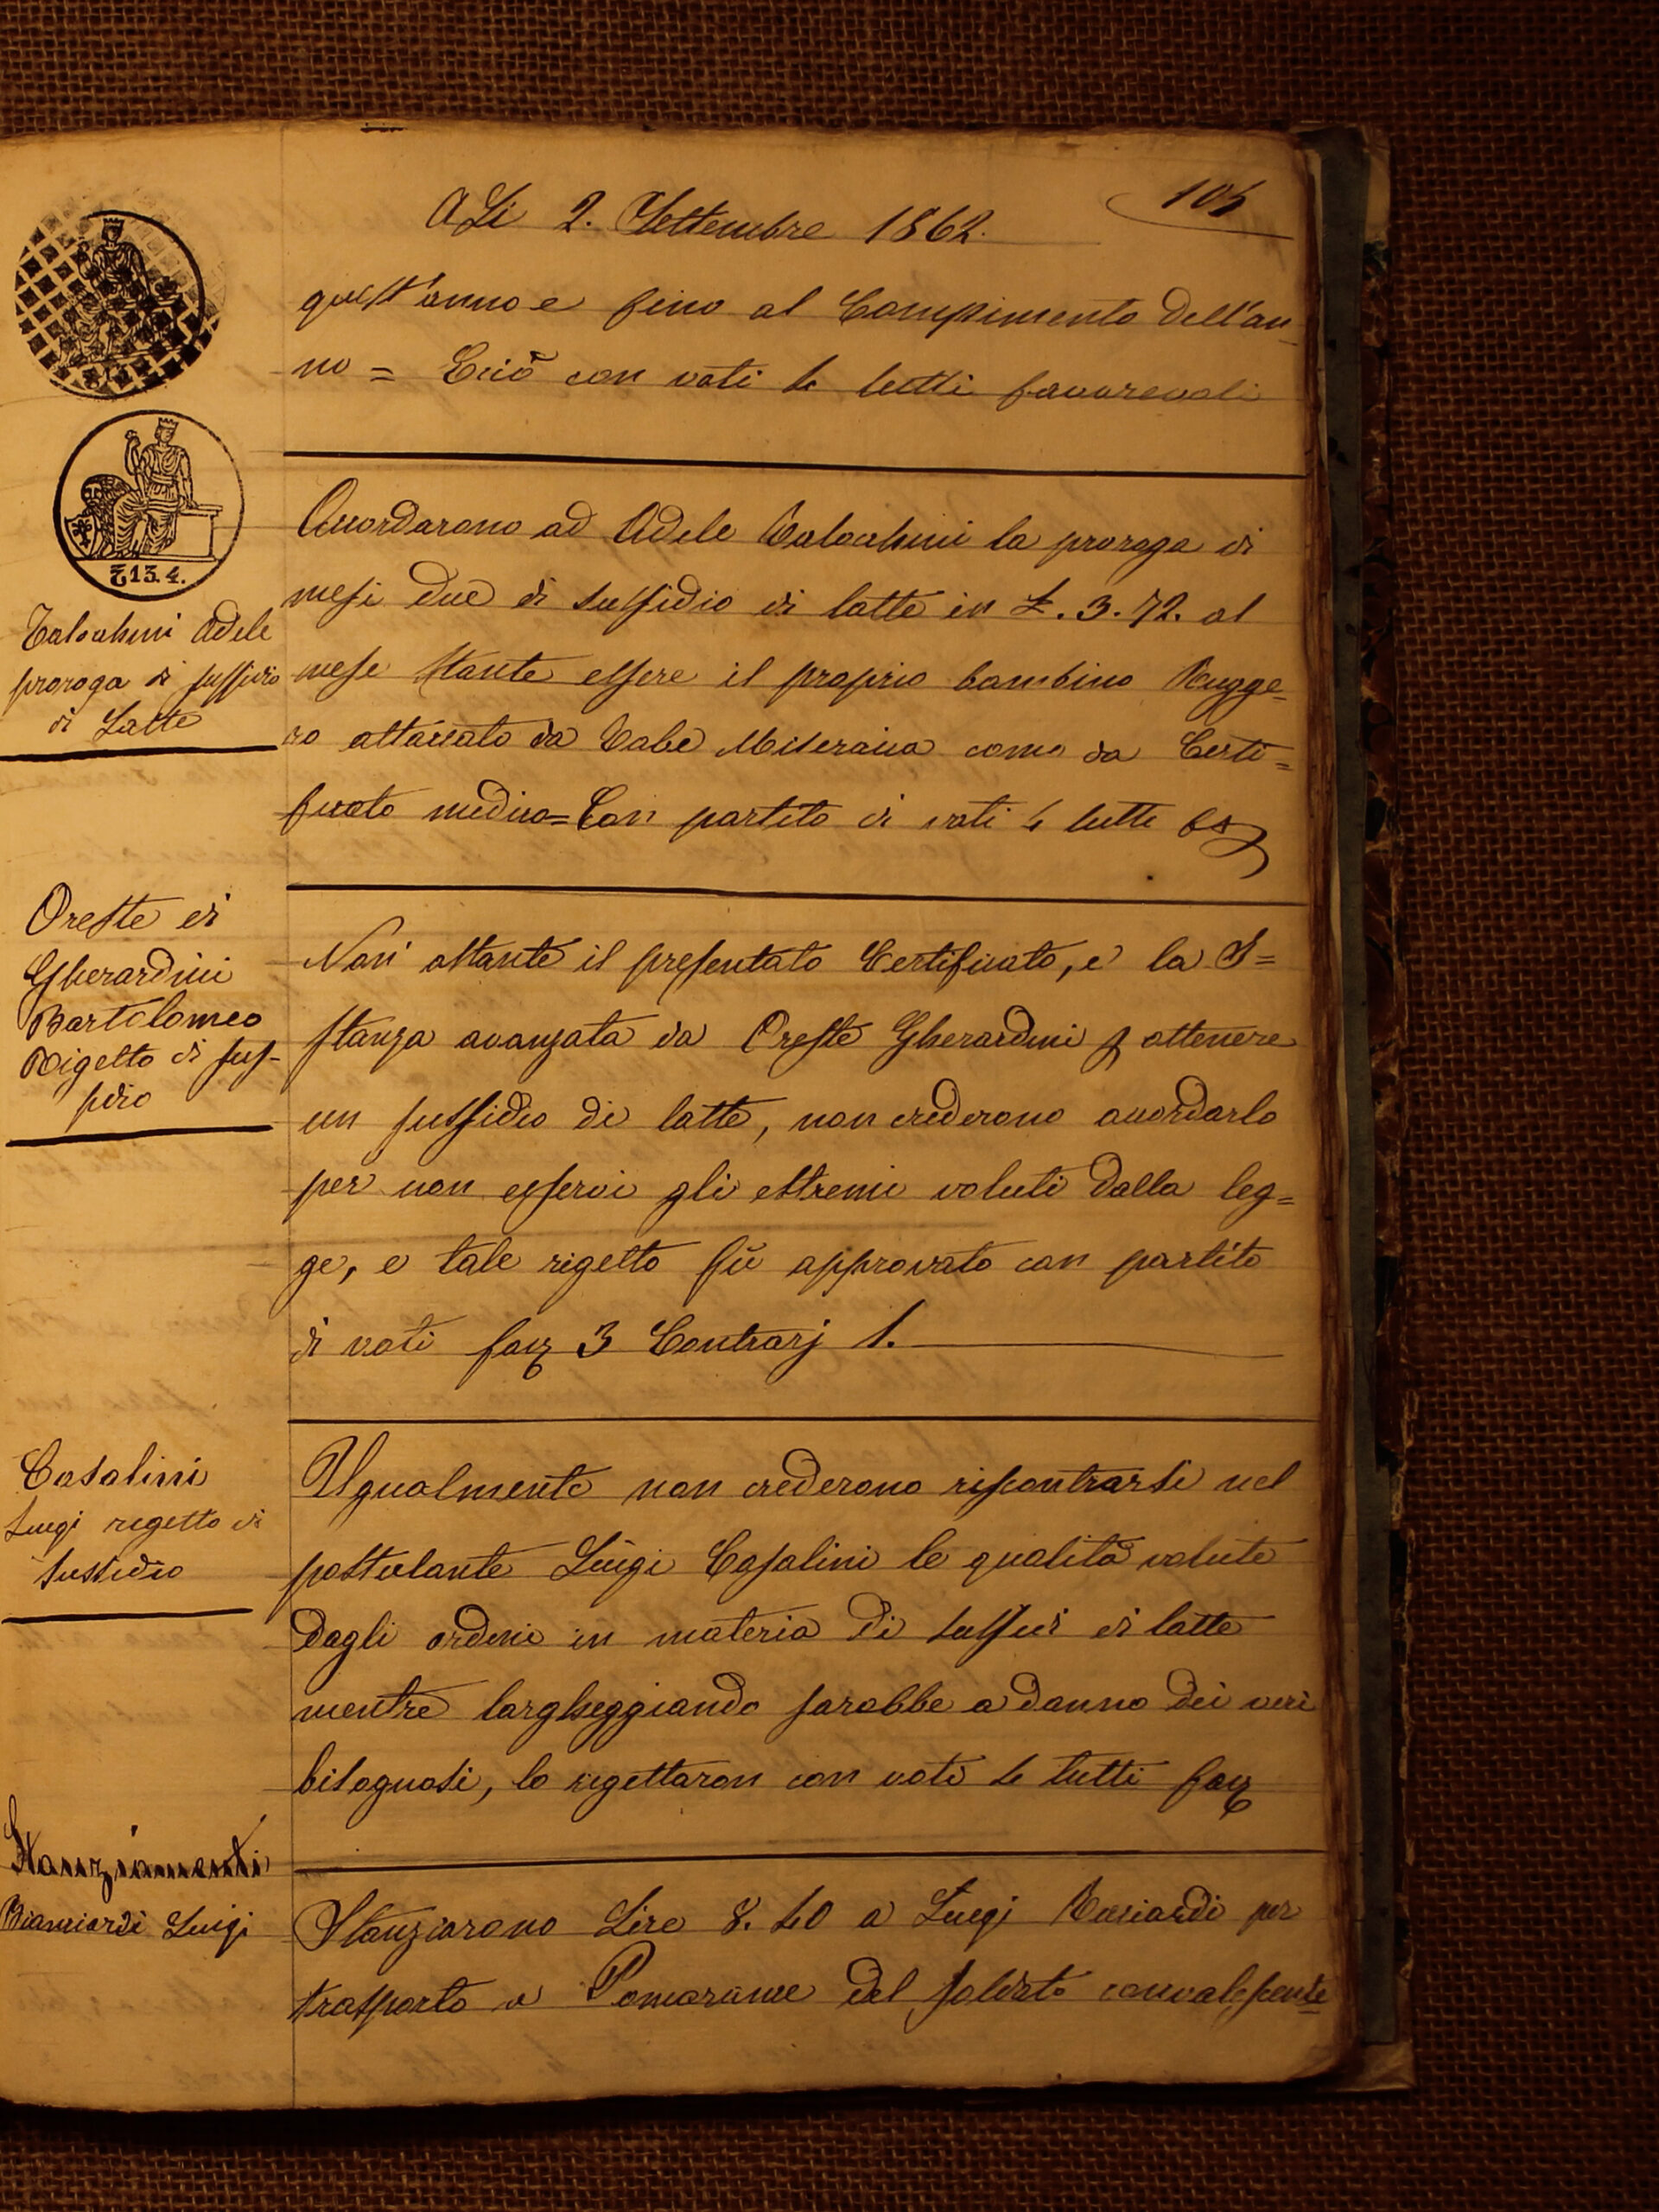 105
A Li 2. Settembre 1862.
quest'anno e fino al Compimento dell'an-
no = E ciò con voti 4 tutti favorevoli
₤13.4.
Adele
proroga di sussidio
di Latte
Accordarono ad Adele la proroga di
mesi due di sussidio di latte in £. 3.72. al
mese stante essere il proprio bambino Rugge=
ro attaccato da Tabe Miseraica come da Certi=
ficato medico = Con partito di voti 4 tutti
Oreste di
Gherardini
Bartolomeo
Rigetto di sus-
sidio
Non ostante il presentato Certificato, e la I=
stanza avanzata da Oreste Gherardini p ottenere
un sussidio di latte, non crederono accordarlo
per non esservi gli estremi voluti dalla leg=
ge, e tale rigetto fù approvato con partito
di voti fav 3 Contrarj 1.
Casalini
Luigi rigetto di
Sussidio
Ugualmente non crederono riscontrarsi nel
postulante Luigi Casalini le qualità volute
dagli ordini in materia di sussidi di latte
mentre largheggiando sarebbe a danno dei veri
bisognosi, lo rigettaron con voti 4 tutti fav
Stanziamenti
Bianciardi Luigi
Stanziarono Lire 8.40 a Luigi per
trasporto a Pomarance del soldato convalescente